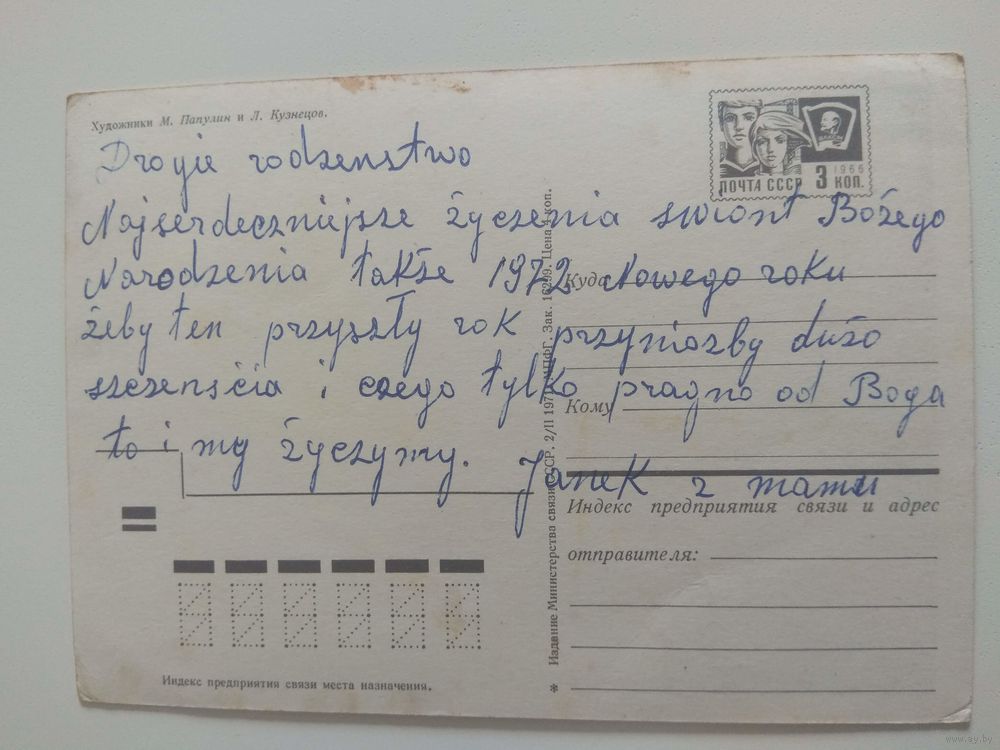 Художники М. Папулин и Л. Кузнецов.
ПОЧТА СССР 3 КОП.
1966
Drogie rodzenstwo
Najserdeczniejsze życzenia swiont Bożego
Narodzenia także 1972 Nowego roku
żeby ten przyszły rok przyniozby dużo
szczensćia i czego tylko pragno od Boga
to i my życzymy. Janek z mamu
Куда
Кому
Индекс предприятия связи и адрес
отправителя:
Издание Министерства связи СССР. 2/II 1971. МПФГ. Зак. 16299. Цена 4 коп.
*
Индекс предприятия связи места назначения.
www.ay.by